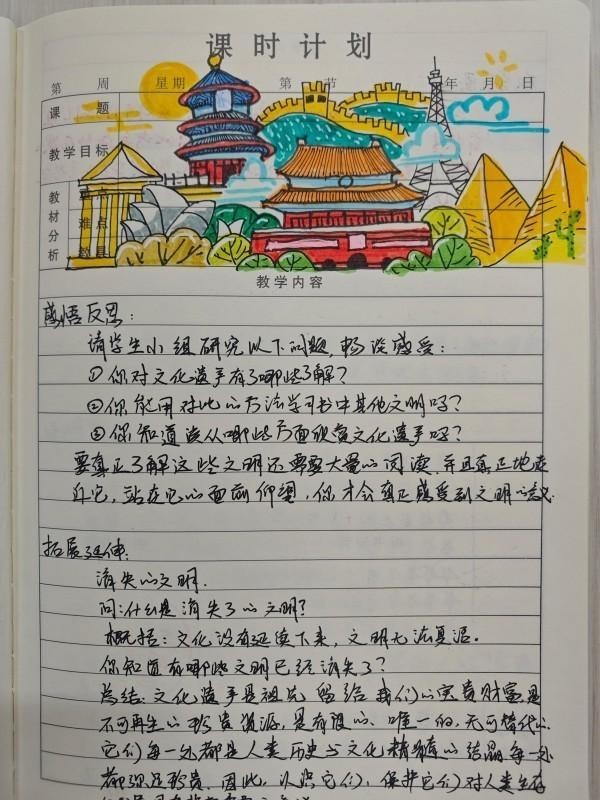 课时计划
第 周 星期 第 节 年 月 日
课 题
教学目标
教材分析
重点
难点
教具
教学内容
感悟反思：
请学生小组研究以下问题,畅谈感受：
①你对文化遗产有了哪些了解？
②你能用对比的方法学习书中其他文明吗？
③你知道该从哪些方面欣赏文化遗产吗？
要真正了解这些文明还需要大量的阅读,并且真正地走
近它,站在它的面前仰望,你才会真正感受到文明的
拓展延伸：
消失的文明.
问:什么是消失了的文明？
概括：文化没有延续下来,文明无法复活。
你知道有哪些文明已经消失了？
总结：文化遗产是祖先留给我们的宝贵财富,是
不可再生的珍贵资源,是有限的、唯一的,无可替代的.
它们每一处都是人类历史与文化精髓的结晶,每一处
都弥足珍贵.因此,认识它们,保护它们对人类生存